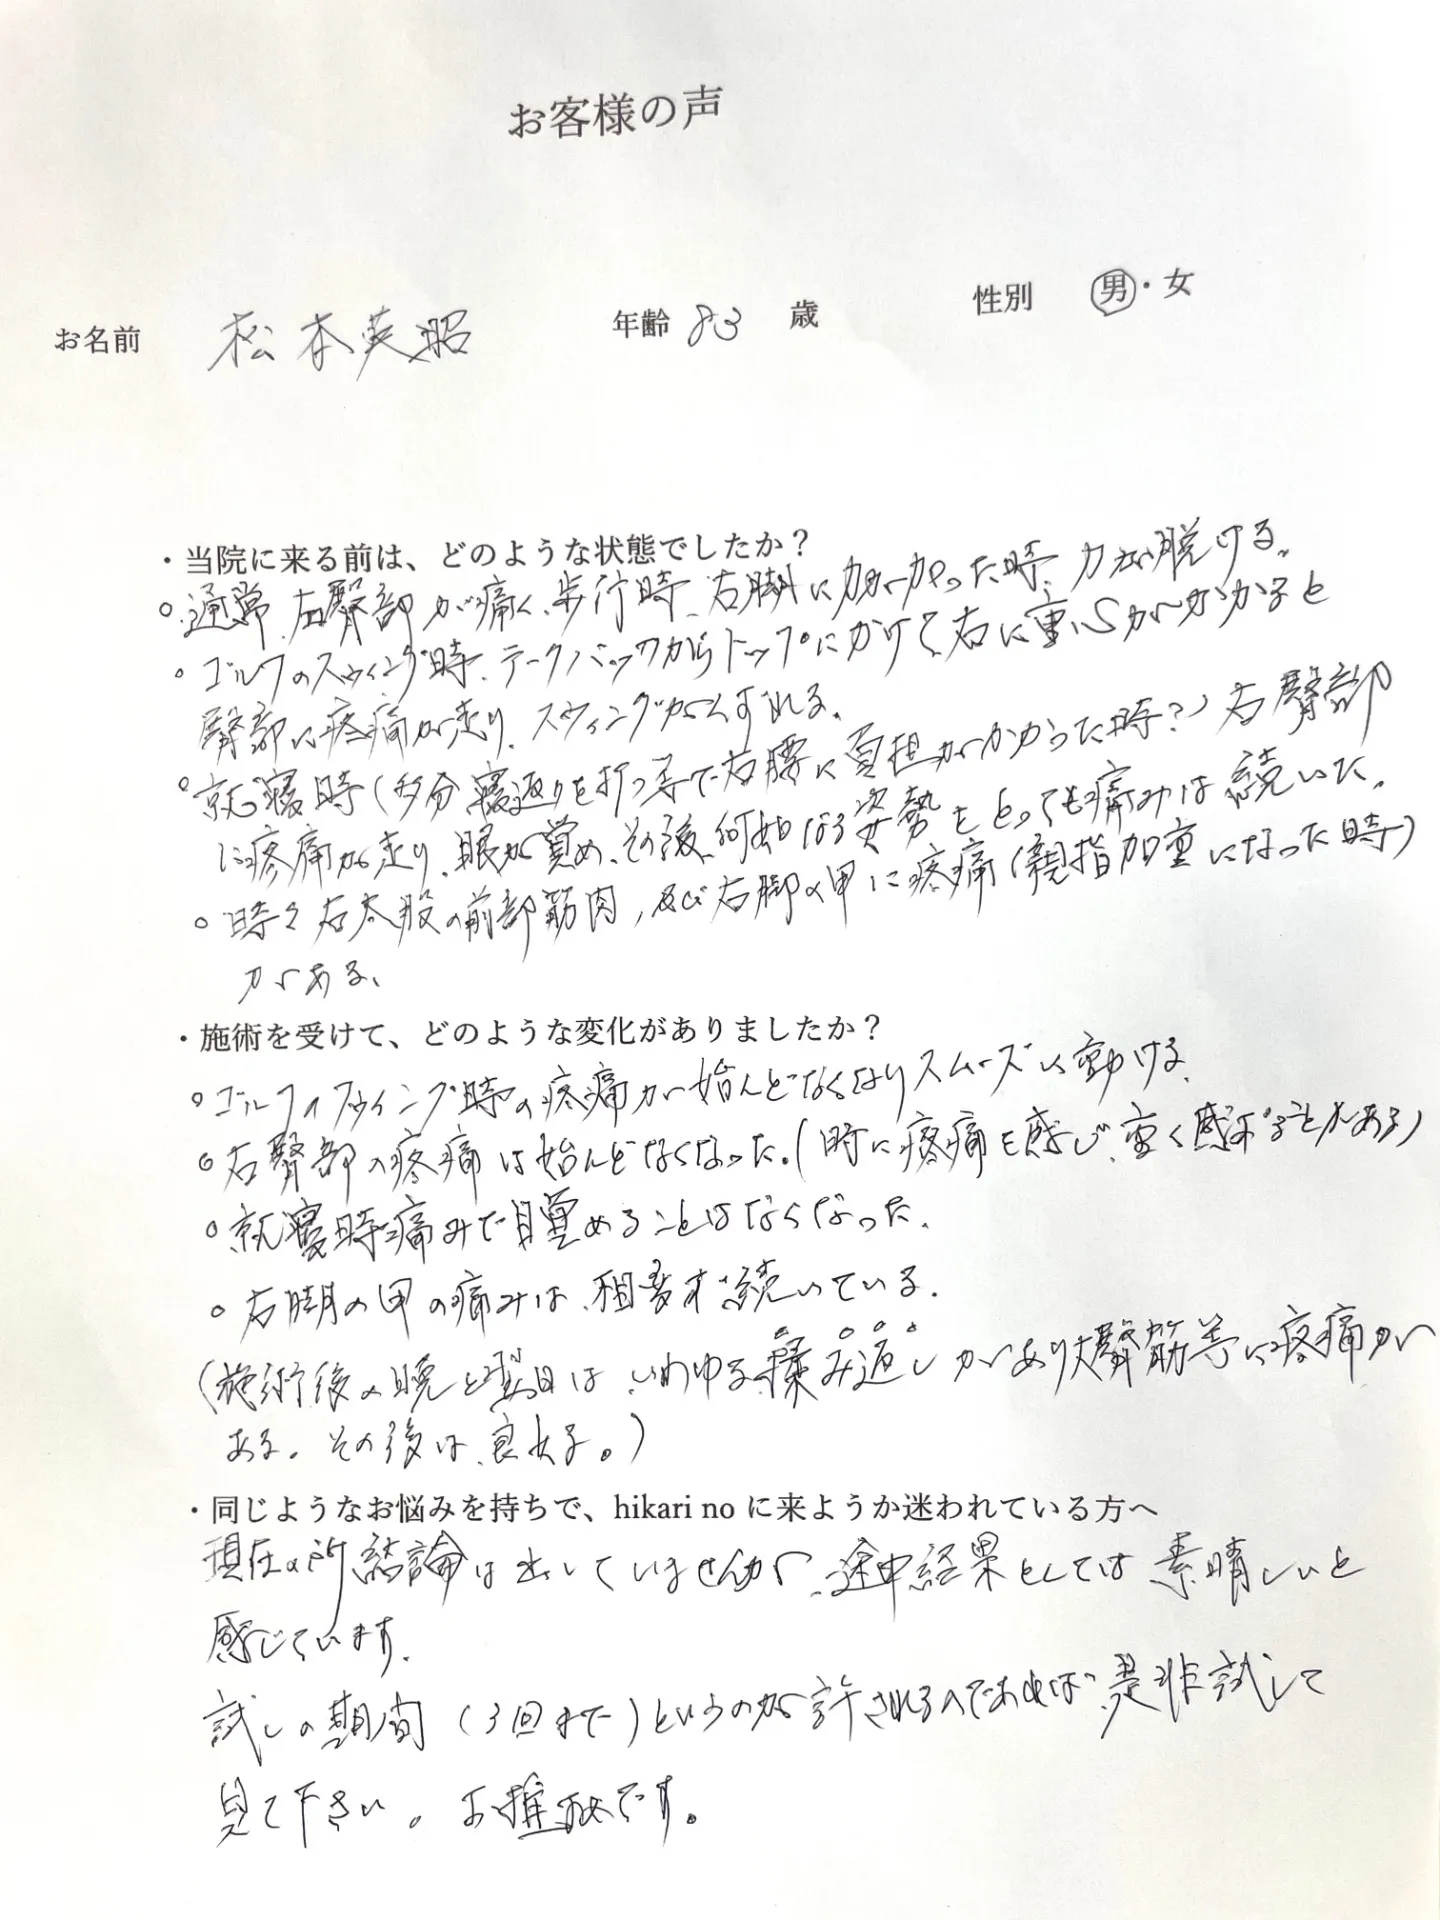 お客様の声
お名前 松本英昭 年齢 83 歳 性別 男・女
・当院に来る前は、どのような状態でしたか？
○通常、右臀部が痛く、歩行時、右脚に力がかかった時、力が脱ける。
○ゴルフのスウィング時、テークバックからトップにかけて、右に重心がかかると
臀部に疼痛が走り、スウィングがくずれる。
○就寝時（多分寝返りを打つ等で右腰に負担がかかった時？）右臀部
に疼痛が走り、眠が覚め、その後、何如なる姿勢をとっても痛みは続いた。
○時々右太股の前部筋肉、及び右脚の甲に疼痛（親指加重になった時）
がある、
・施術を受けて、どのような変化がありましたか？
○ゴルフのスウィング時の疼痛が殆んどなくなりスムーズに動ける。
○右臀部の疼痛は殆んどなくなった。（時に疼痛を感じ、重く感ずることがある）
○就寝時痛みで目覚めることはなくなった。
○右脚の甲の痛みは、相変ず続いている。
（施術後の晩と翌日は、いわゆる揉み返しがあり大臀筋等に疼痛が
ある。その後は、良好。）
・同じようなお悩みを持ちで、hikari no に来ようか迷われている方へ
現在の所結論は出していませんが、途中経果としては素晴しいと
感じています。
試しの期間（3回まで）というのが許されるのであれば、是非試して
見て下さい。お推めです。